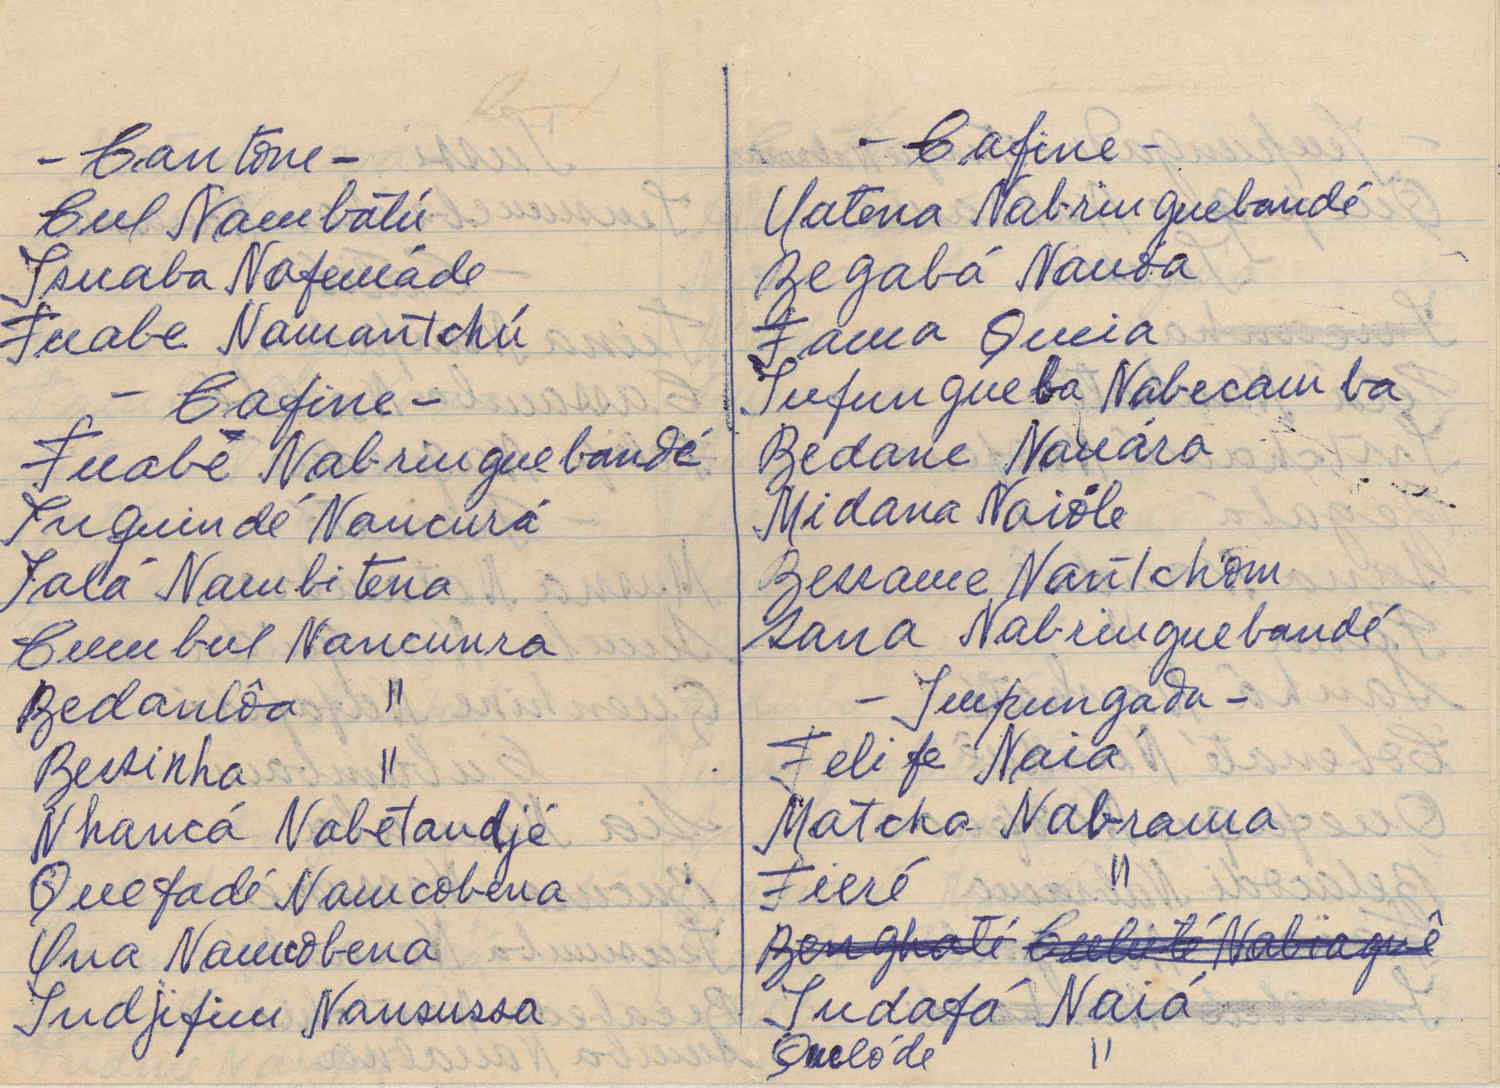 - Cantone -
Cul Nambatú
Isnaba Nafemáde
Fuabe Namantchú
- Cafine -
Fuabê Nabringuebandé
Inguindé Nancurá
Ialá Nambitena
Cumbul Nancunra
Bedanlôa "
Bessinha "
Nhancá Nabetandjé
Quefadé Namcobena
Qna Namcobena
Indjifim Nansussa
- Cafine -
Yatena Nabringuebandé
Begabá Nausa
Fama Qmia
Infungueba Nabecamba
Bedane Nauára
Midana Naióle
Bessame Nantchom
Sana Nabringuebandé
- Impungada -
Felife Naiá
Matcha Nabrama
Fieré "
Benghaté Nabiaguê
Indafá Naiá
Quelóde "